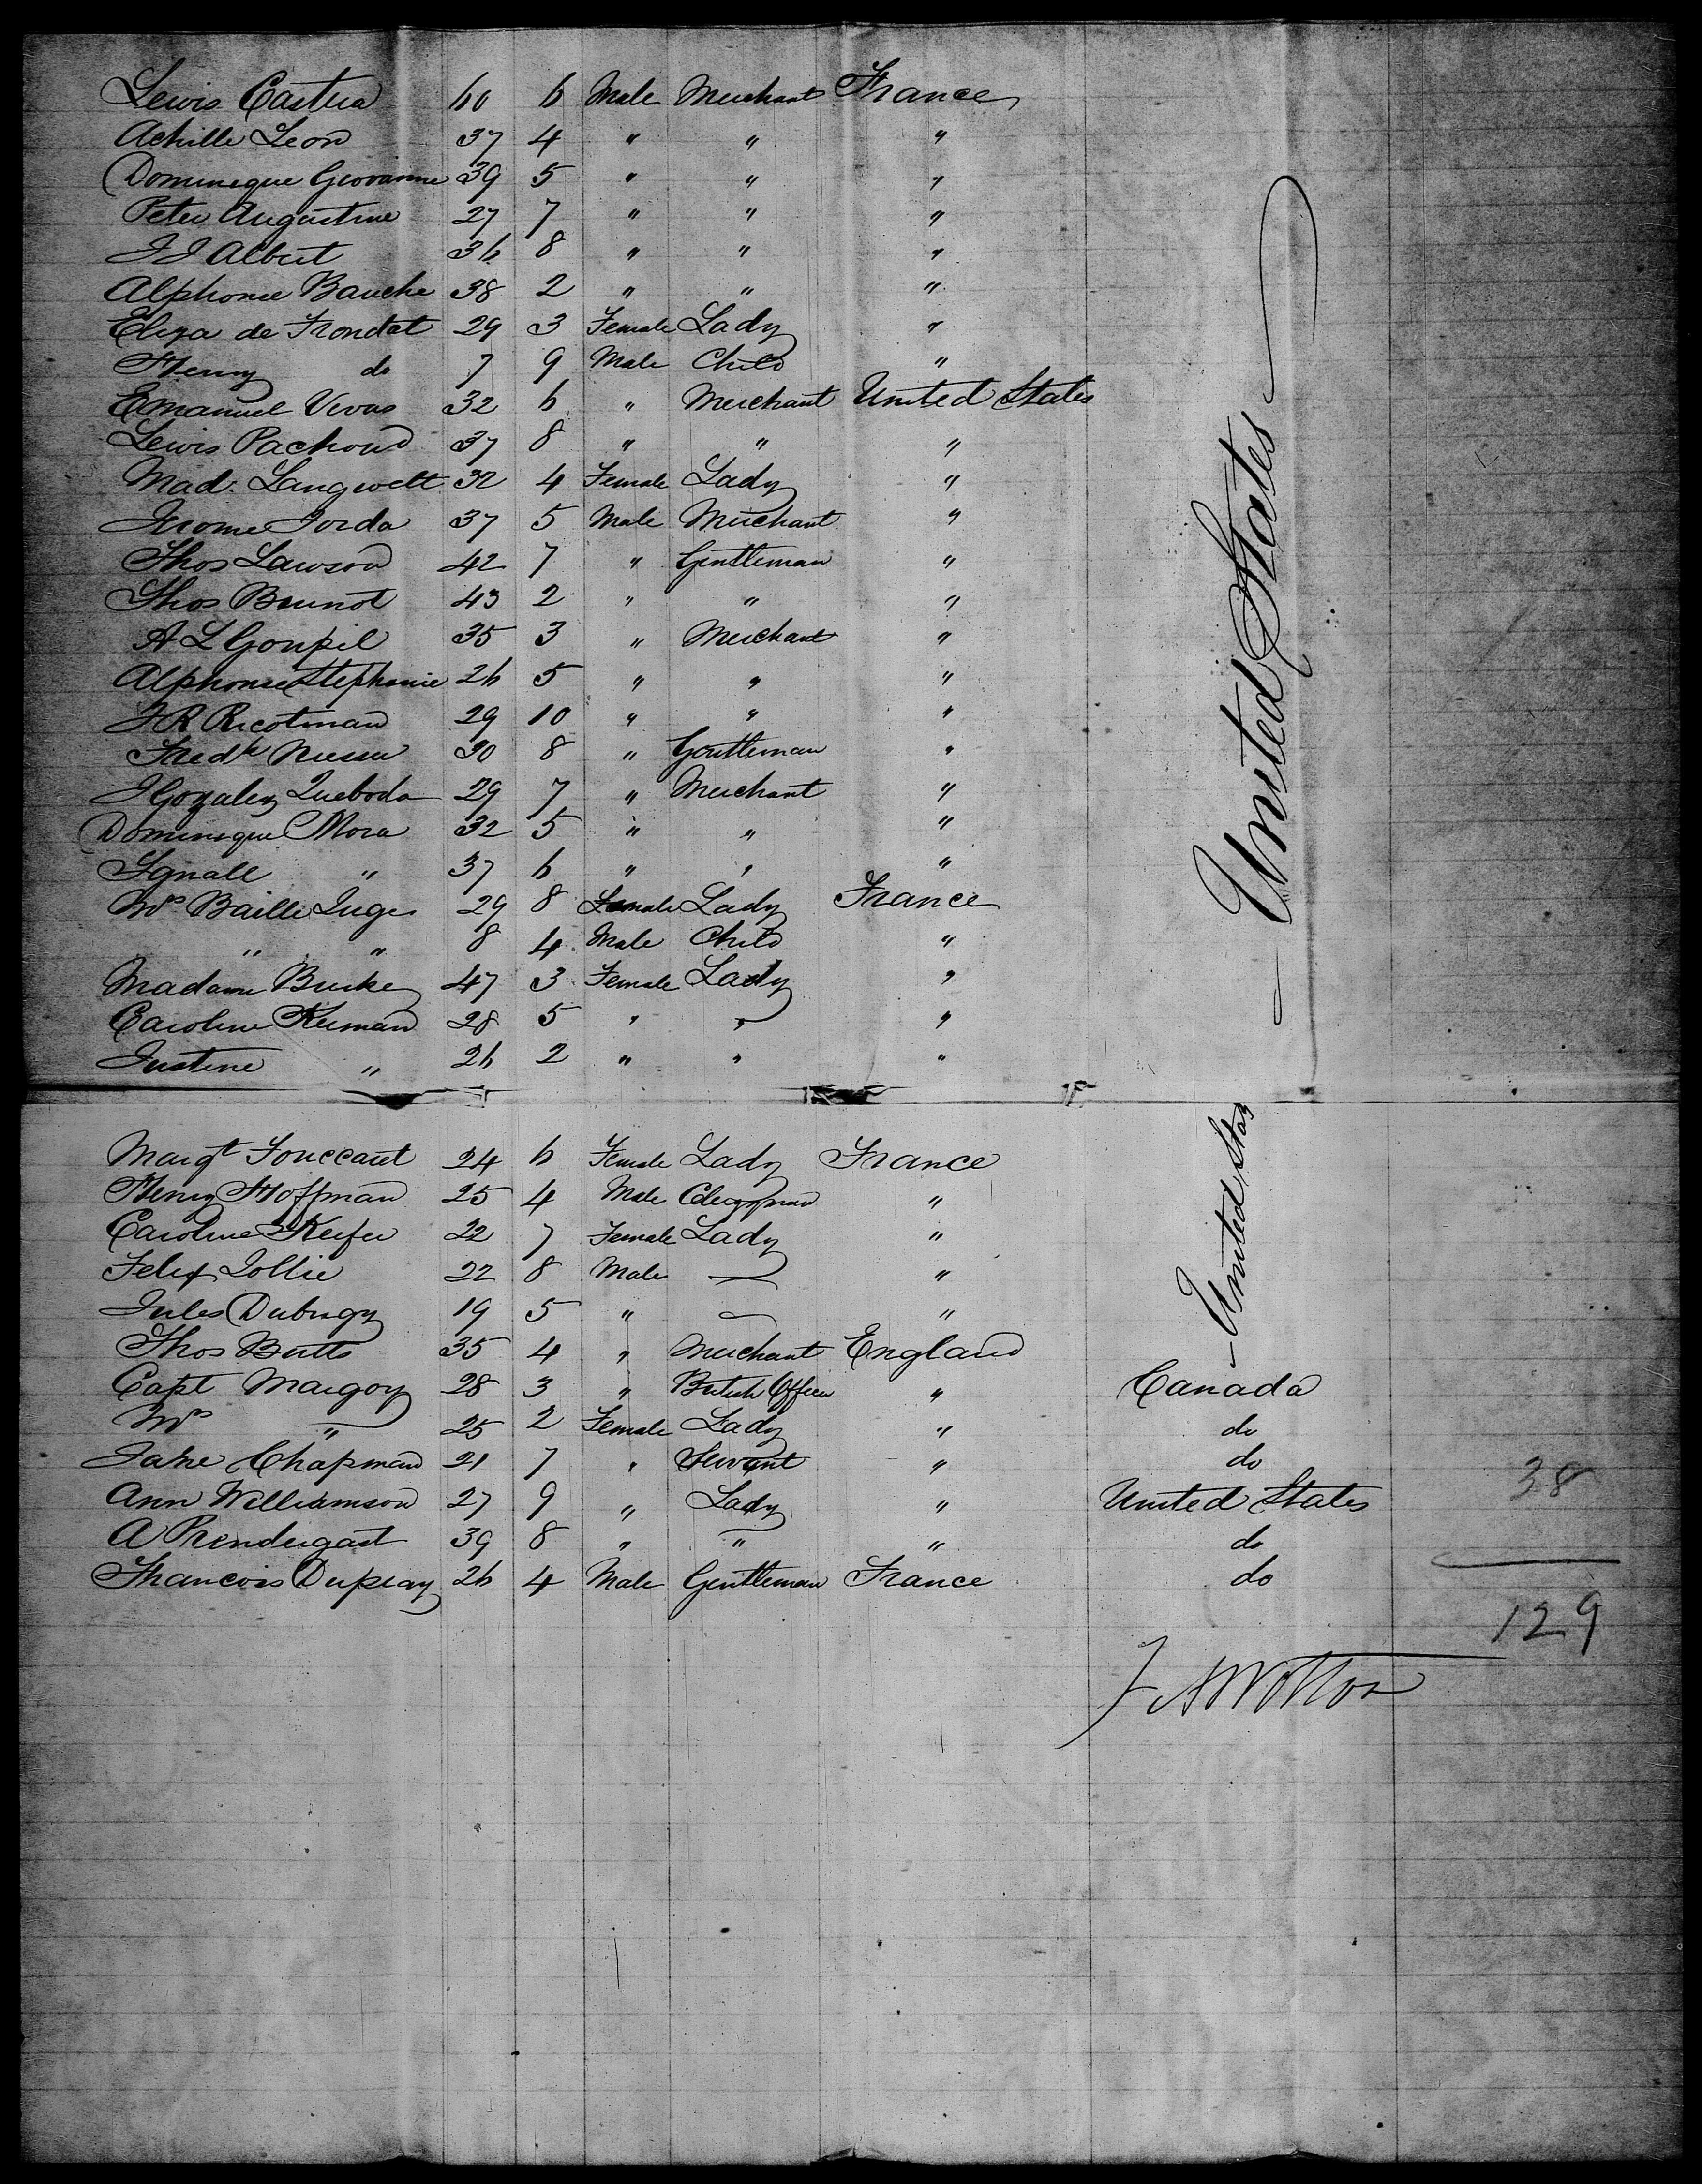 Lewis Castua 60 6 Male Merchant France
Achille Leon 37 4 " " "
Dominique Giovanne 39 5 " " "
Peter Augustine 27 7 " " "
J J Albert 36 8 " " "
Alphonse Bauche 38 2 " " "
Eliza de Trondet 29 3 Female Lady "
Henry do 7 9 Male Child "
Emanuel Vivas 32 6 " Merchant United States
Lewis Pachoud 37 8 " " "
Mad. Langwelt 32 4 Female Lady "
Jerome Jorda 37 5 Male Merchant "
Thos Lawson 42 7 " Gentleman "
Thos Brunot 43 2 " " "
A L Goupil 35 3 " Merchant "
Alphonse Stephanie 26 5 " " "
J R Ricotman 29 10 " " "
Fredk 30 8 " Gentleman "
J Gozalez Queboda 29 7 " Merchant "
Dominique Mora 32 5 " " "
Ignall " 37 6 " " "
Mrs Baille Inge 29 8 Female Lady France
" " 8 4 Male Child "
Madame Burke 47 3 Female Lady "
Caroline Kerman 28 5 " " "
Justine " 26 2 " " "
United States
Margt Fouccaret 24 6 Female Lady France
Henry Hoffman 25 4 Male Clergyman "
Caroline Keifer 22 7 Female Lady "
Felix Jollie 22 8 Male — "
Jules Dubugy 19 5 " — "
Thos Butts 35 4 " Merchant England
United Stas
Capt Margoy 28 3 " British Officer " Canada
Mrs " 25 2 Female Lady " do
Jane Chapman 21 7 " Servant " do
Ann Williamson 27 9 " Lady " United States 38
A Prendergast 39 8 " " " do
Francois Dupray 26 4 Male Gentleman France do
129
J A Wotton